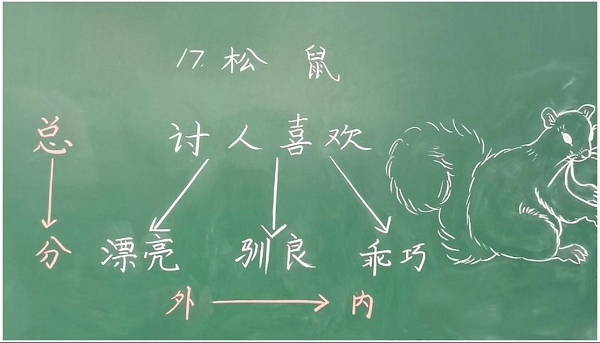 17. 松 鼠
总 讨人喜欢
分 漂亮 驯良 乖巧
外 内